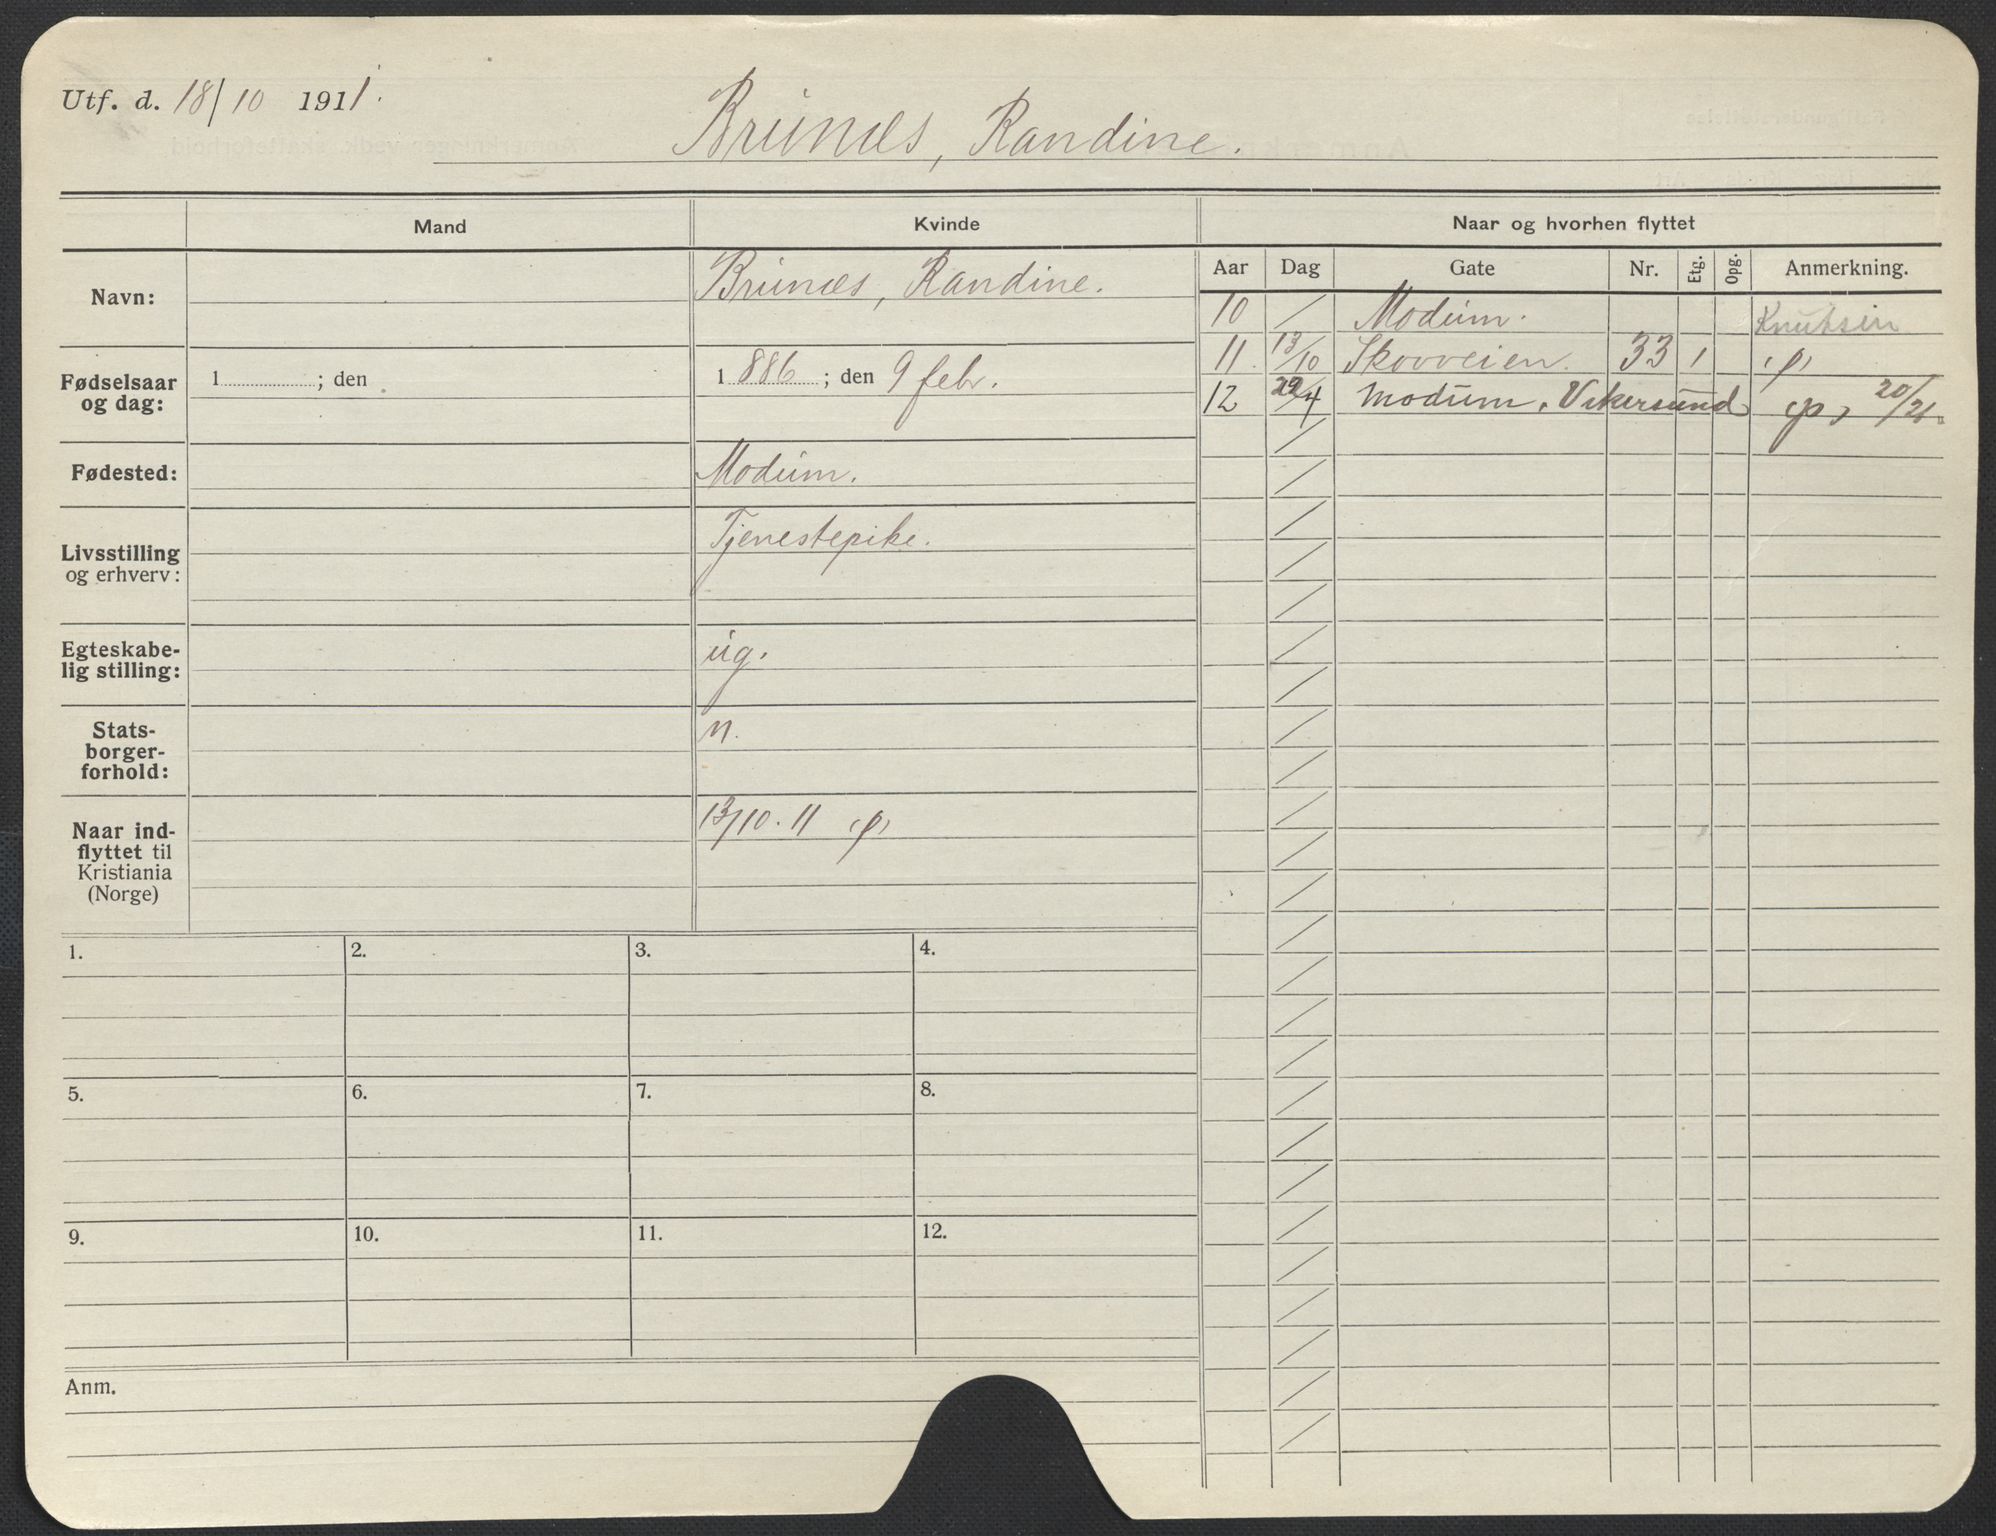 Utf. d. 18/10 1911.
Brunæs, Randine.
Mand
Kvinde
Naar og hvorhen flyttet
Navn:
Brunæs, Randine.
Fødselsaar og dag:
1 ; den
1 886 ; den 9 febr.
Fødested:
Modum.
Livsstilling og erhverv:
Tjenestepike.
Egteskabe-
lig stilling:
ug.
Stats-
borger-
forhold:
n.
Naar ind-
flyttet til
Kristiania
(Norge)
13/10. 11 (p)
Aar Dag Gate Nr. Etg. Opg. Anmerkning.
10 / Modum. Knutsen
11. 13/10 Skovveien. 33 1 (p)
12 /4 Modum, Vikersund p, 20/21.
1. 2. 3. 4.
5. 6. 7. 8.
9. 10. 11. 12.
Anm.